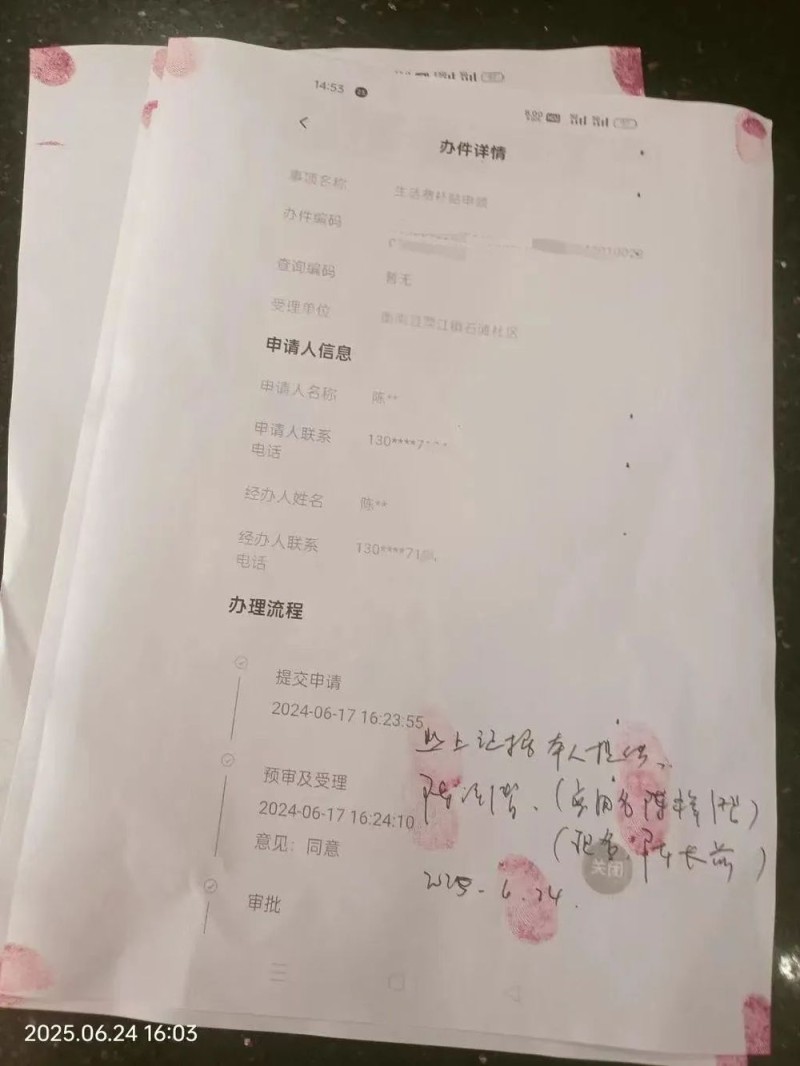 14:53
办件详情
事项名称
生活救补贴申请
办件编码
查询编码
暂无
受理单位
申请人信息
申请人名称 陈**
申请人联系 130****7***
电话
经办人姓名 陈**
经办人联系 130****71
电话
办理流程
提交申请
2024-06-17 16:23:55
以上证据本人提供
预审及受理
2024-06-17 16:24:10
意见：同意
关闭
2025-6.24.
审批
2025.06.24 16:03